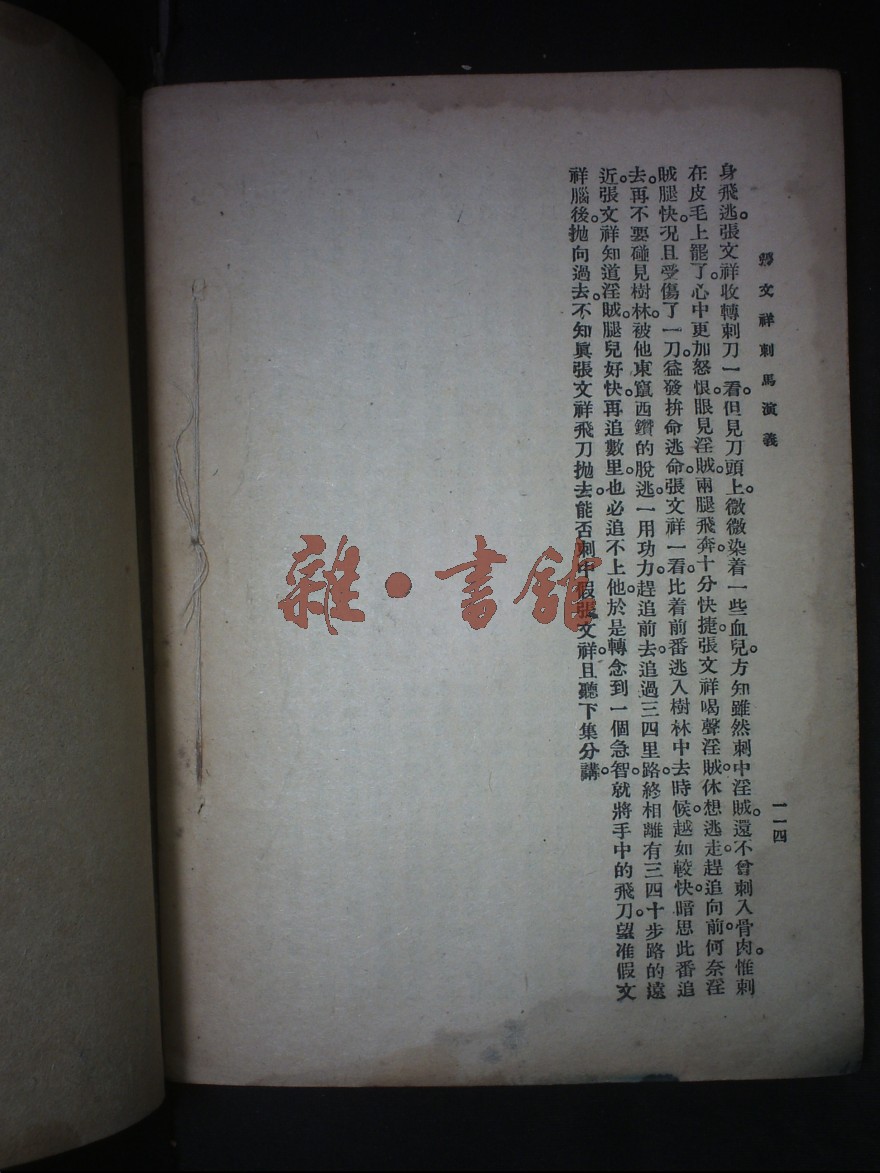 張文祥刺馬演義
一一四
身飛逃。張文祥收轉刺刀一看。但見刀頭上。微微染着一些血兒。方知雖然刺中淫賊。還不曾刺入骨肉。惟刺
在皮毛上罷了。心中更加怒恨。眼見淫賊。兩腿飛奔。十分快捷。張文祥喝聲淫賊。休想逃走。趕追向前。何奈淫
賊腿快。况且受傷了一刀。益發拚命逃命。張文祥一看。比着前番逃入樹林中去時候。越如較快。暗思此番追
去。再不要碰見樹林。被他東竄西鑽的脫逃。一用功力。趕追前去。追過三四里路。終相離有三四十步路的遠
近。張文祥知道淫賊。腿兒好快。再追數里。也必追不上他。於是轉念到一個急智。就將手中的飛刀。望准假文
祥腦後。抛向過去。不知眞張文祥飛刀抛去。能否刺中假張文祥。且聽下集分講。
雜·書館